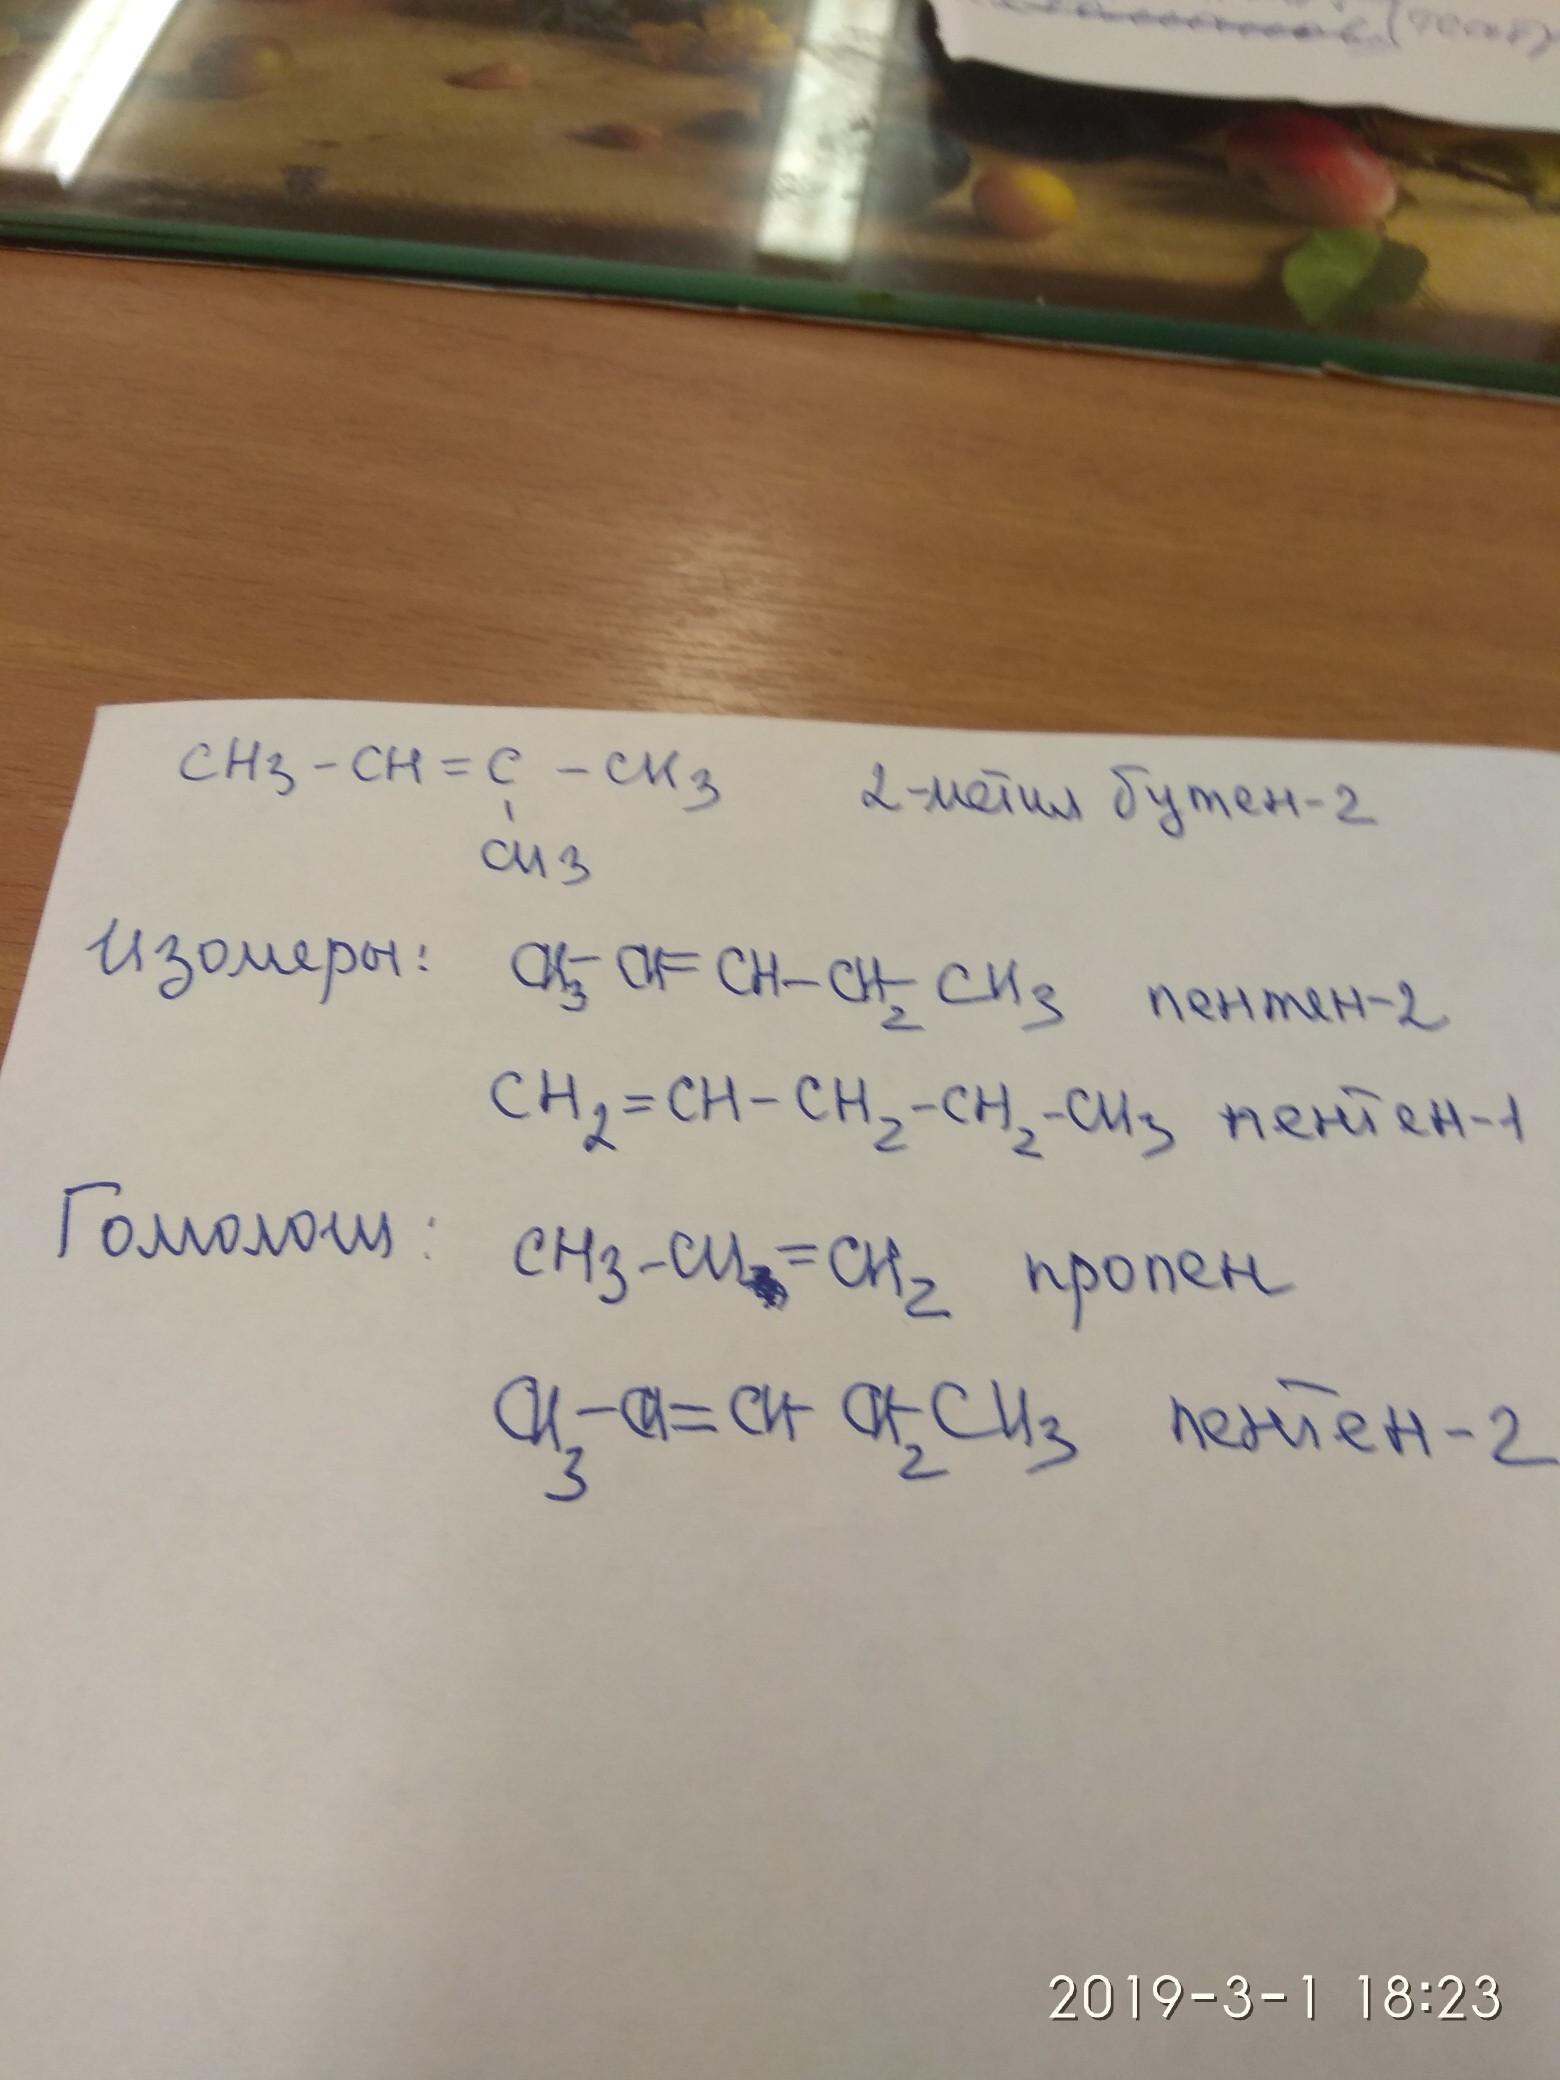 CH3-CH=C-CH3 2-метил бутен-2
CH3
Изомеры: CH3-CH=CH-CH2-CH3 пентен-2
CH2=CH-CH2-CH2-CH3 пентен-1
Гомологи: CH3-CH=CH2 пропен
CH3-CH=CH-CH2-CH3 пентен-2
2019-3-1 18:23